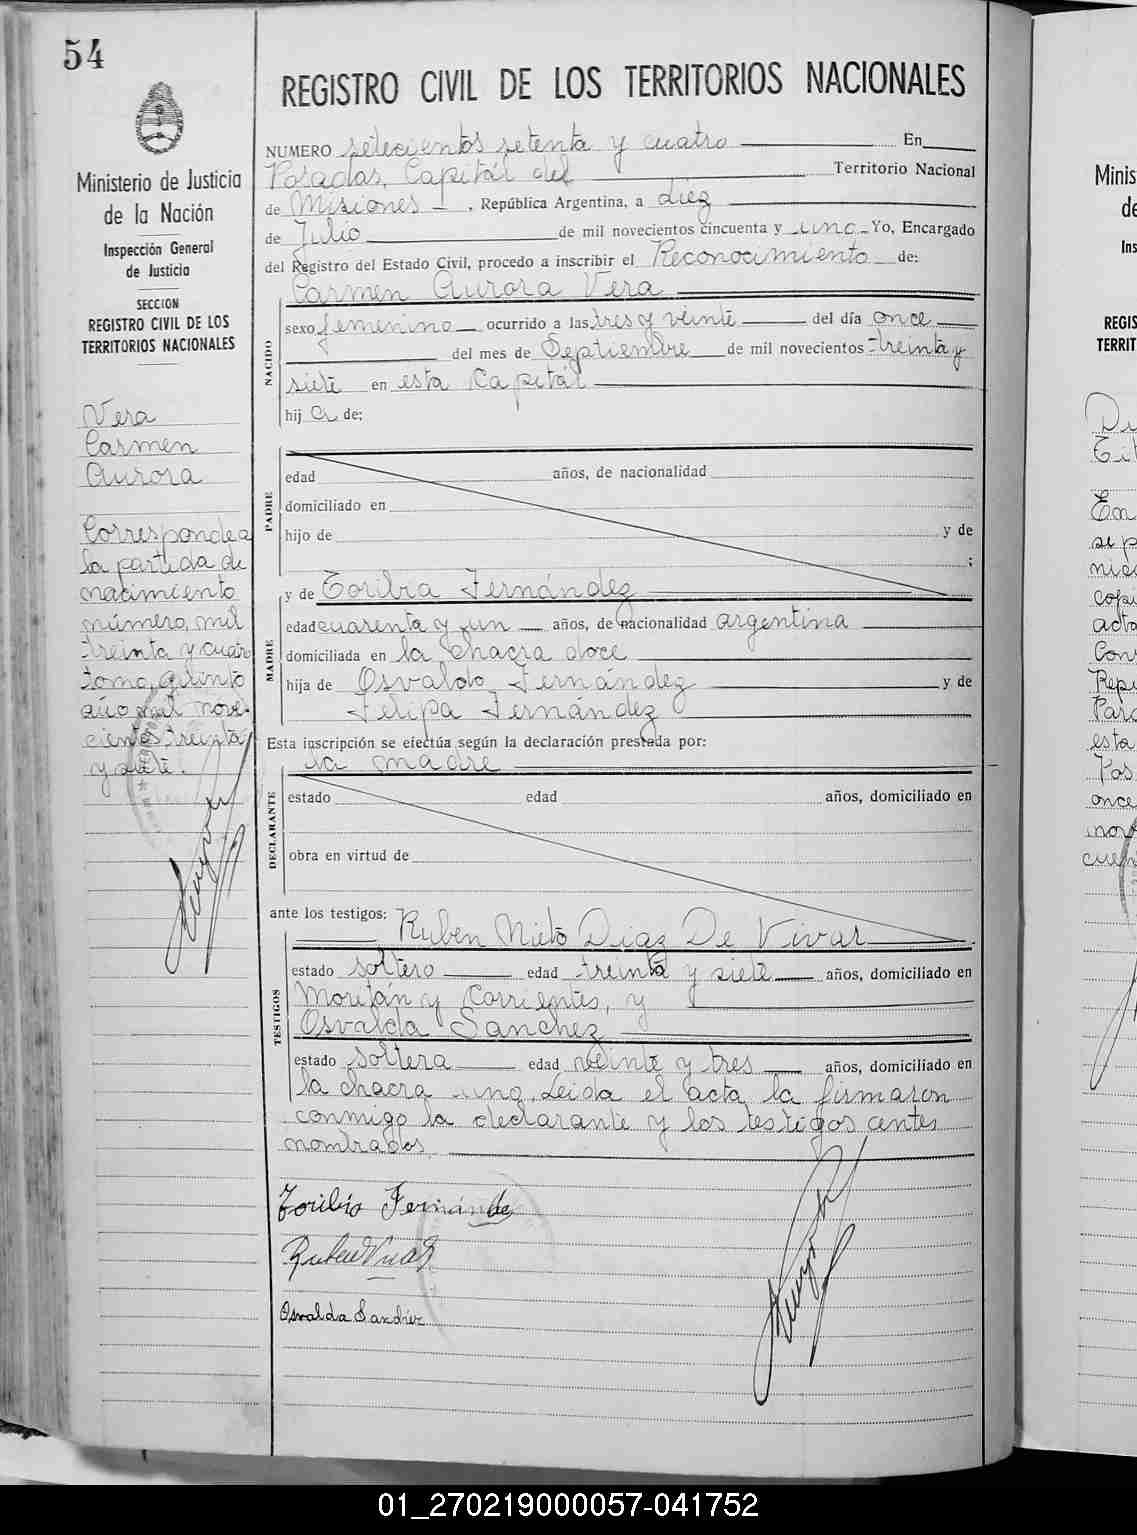 54
Ministerio de Justicia
de la Nación
Inspección General
de Justicia
SECCION
REGISTRO CIVIL DE LOS
TERRITORIOS NACIONALES
Vera
Carmen
Aurora
Corresponde a
la partida de
nacimiento
número, mil
treinta y cuatr
tomo, quinto
año mil nove-
cientos treinta
y siete.
REGISTRO CIVIL DE LOS TERRITORIOS NACIONALES
NUMERO setecientos setenta y cuatro En
Posadas, Capitál del Territorio Nacional
de Misiones, República Argentina, a diez
de Julio de mil novecientos cincuenta y uno Yo, Encargado
del Registro del Estado Civil, procedo a inscribir el Reconocimiento de:
Carmen Aurora Vera
NACIDO
sexo femenino ocurrido a las tres y veinte del día once
del mes de Septiembre de mil novecientos treinta y
siete en esta Capitál
hij a de:
PADRE
edad años, de nacionalidad
domiciliado en
hijo de y de
;
MADRE
y de Toribia Fernández
edad cuarenta y un años, de nacionalidad argentina
domiciliada en la chacra doce
hija de Osvaldo Fernández y de
Felipa Fernández
Esta inscripción se efectúa según la declaración prestada por:
la madre
DECLARANTE
estado edad años, domiciliado en
obra en virtud de
ante los testigos: Ruben Nieto Diaz De Vivar
TESTIGOS
estado soltero edad treinta y siete años, domiciliado en
Moritán y Corrientes, y
Osvalda Sanchez
estado soltera edad veinte y tres años, domiciliado en
la chacra uno. Leida el acta la firmaron
conmigo la declarante y los testigos antes
nombrados.
Toribia Fernández
Ruben Vivar
Osvalda Sanchez
Minis
de
Ins
REGIS
TERRIT
Di
En
se p
nic
copi
acta
Con
Repú
Para
esta
Pos
once
nov
cuen
01_270219000057-041752